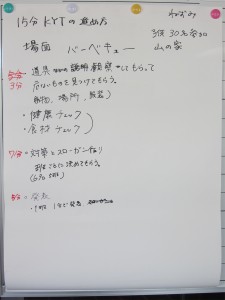 15分 KYTの進め方
3/8 30名参加
場面 バーベキュー 山の家
3分
道具 観察してもらって
危ないものを見つけてもらう。
(動物、場所、服装)
・健康チェック
・食材チェック
7分 = 対策とスローガン作り
班ごとに決めてもらう。
(6名 5班)
発表
・1班 1分で発表